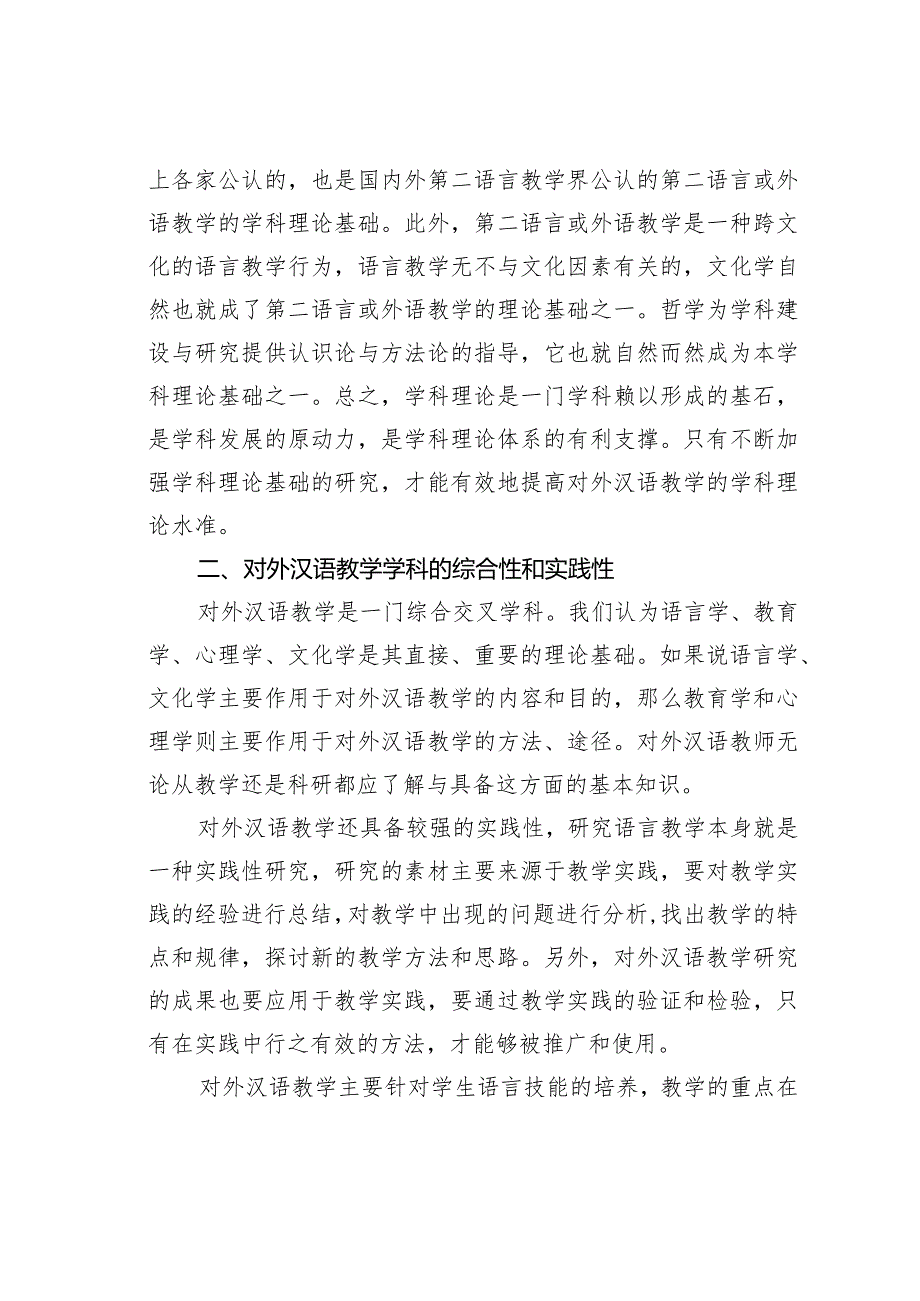 上各家公认的，也是国内外第二语言教学界公认的第二语言或外
语教学的学科理论基础。此外，第二语言或外语教学是一种跨文
化的语言教学行为，语言教学无不与文化因素有关的，文化学自
然也就成了第二语言或外语教学的理论基础之一。哲学为学科建
设与研究提供认识论与方法论的指导，它也就自然而然成为本学
科理论基础之一。总之，学科理论是一门学科赖以形成的基石，
是学科发展的原动力，是学科理论体系的有利支撑。只有不断加
强学科理论基础的研究，才能有效地提高对外汉语教学的学科理
论水准。
二、对外汉语教学学科的综合性和实践性
对外汉语教学是一门综合交叉学科。我们认为语言学、教育
学、心理学、文化学是其直接、重要的理论基础。如果说语言学、
文化学主要作用于对外汉语教学的内容和目的，那么教育学和心
理学则主要作用于对外汉语教学的方法、途径。对外汉语教师无
论从教学还是科研都应了解与具备这方面的基本知识。
对外汉语教学还具备较强的实践性，研究语言教学本身就是
一种实践性研究，研究的素材主要来源于教学实践，要对教学实
践的经验进行总结,对教学中出现的问题进行分析,找出教学的特
点和规律，探讨新的教学方法和思路。另外，对外汉语教学研究
的成果也要应用于教学实践，要通过教学实践的验证和检验，只
有在实践中行之有效的方法，才能够被推广和使用。
对外汉语教学主要针对学生语言技能的培养，教学的重点在